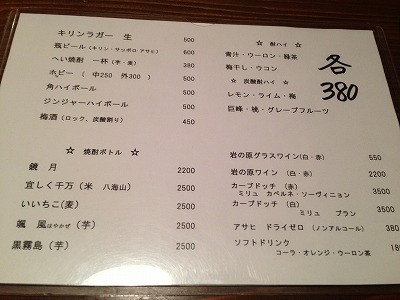 キリンラガー 生 500
瓶ビール(キリン・サッポロ・アサヒ) 600
へい焼酎 一杯(芋・麦) 380
ホピー ( 中250 外300 ) 500
角ハイボール 500
ジンジャーハイボール 500
梅酒(ロック、炭酸割り) 450
☆ 焼酎ボトル ☆
鏡 月 2200
宜しく千万(米 八海山) 2500
いいちこ(麦) 2500
颯 風 はやかぜ(芋) 2500
黒霧島(芋) 2500
☆ 酎ハイ ☆
青汁・ウーロン・緑茶
梅干し・ウコン
☆ 炭酸酎ハイ ☆
レモン・ライム・梅
巨峰・桃・グレープフルーツ
各
380
岩の原グラスワイン(白・赤) 550
岩の原ワイン (白・赤) 2200
カーブドッチ (赤)
ミリュ カベルネ・ソーヴィニョン 3500
カーブドッチ (白)
ミリュ ブラン 3500
アサヒ ドライゼロ (ノンアルコール) 380
ソフトドリンク
コーラ・オレンジ・ウーロン茶